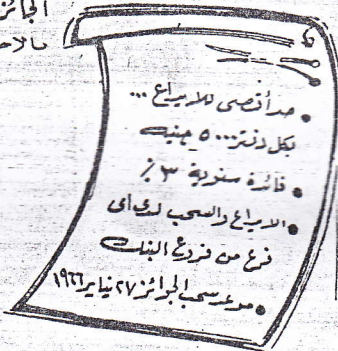 الجائز
بالاد
• حد أقصى للايداع ...
بكل دفتر ٥٠٠٠ جنيه
• فائدة سنوية ٣ ٪
• الايداع والسحب لدى أى
فرع من فروع البنك
• موعد سحب الجوائز ٢٧ يناير ١٩٦٦